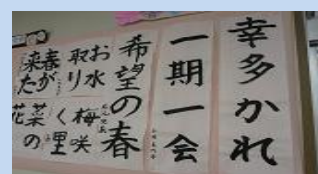 幸多かれ
一期一会
希望の春
お水
取り
梅咲
く里
春が
来た
菜の
花